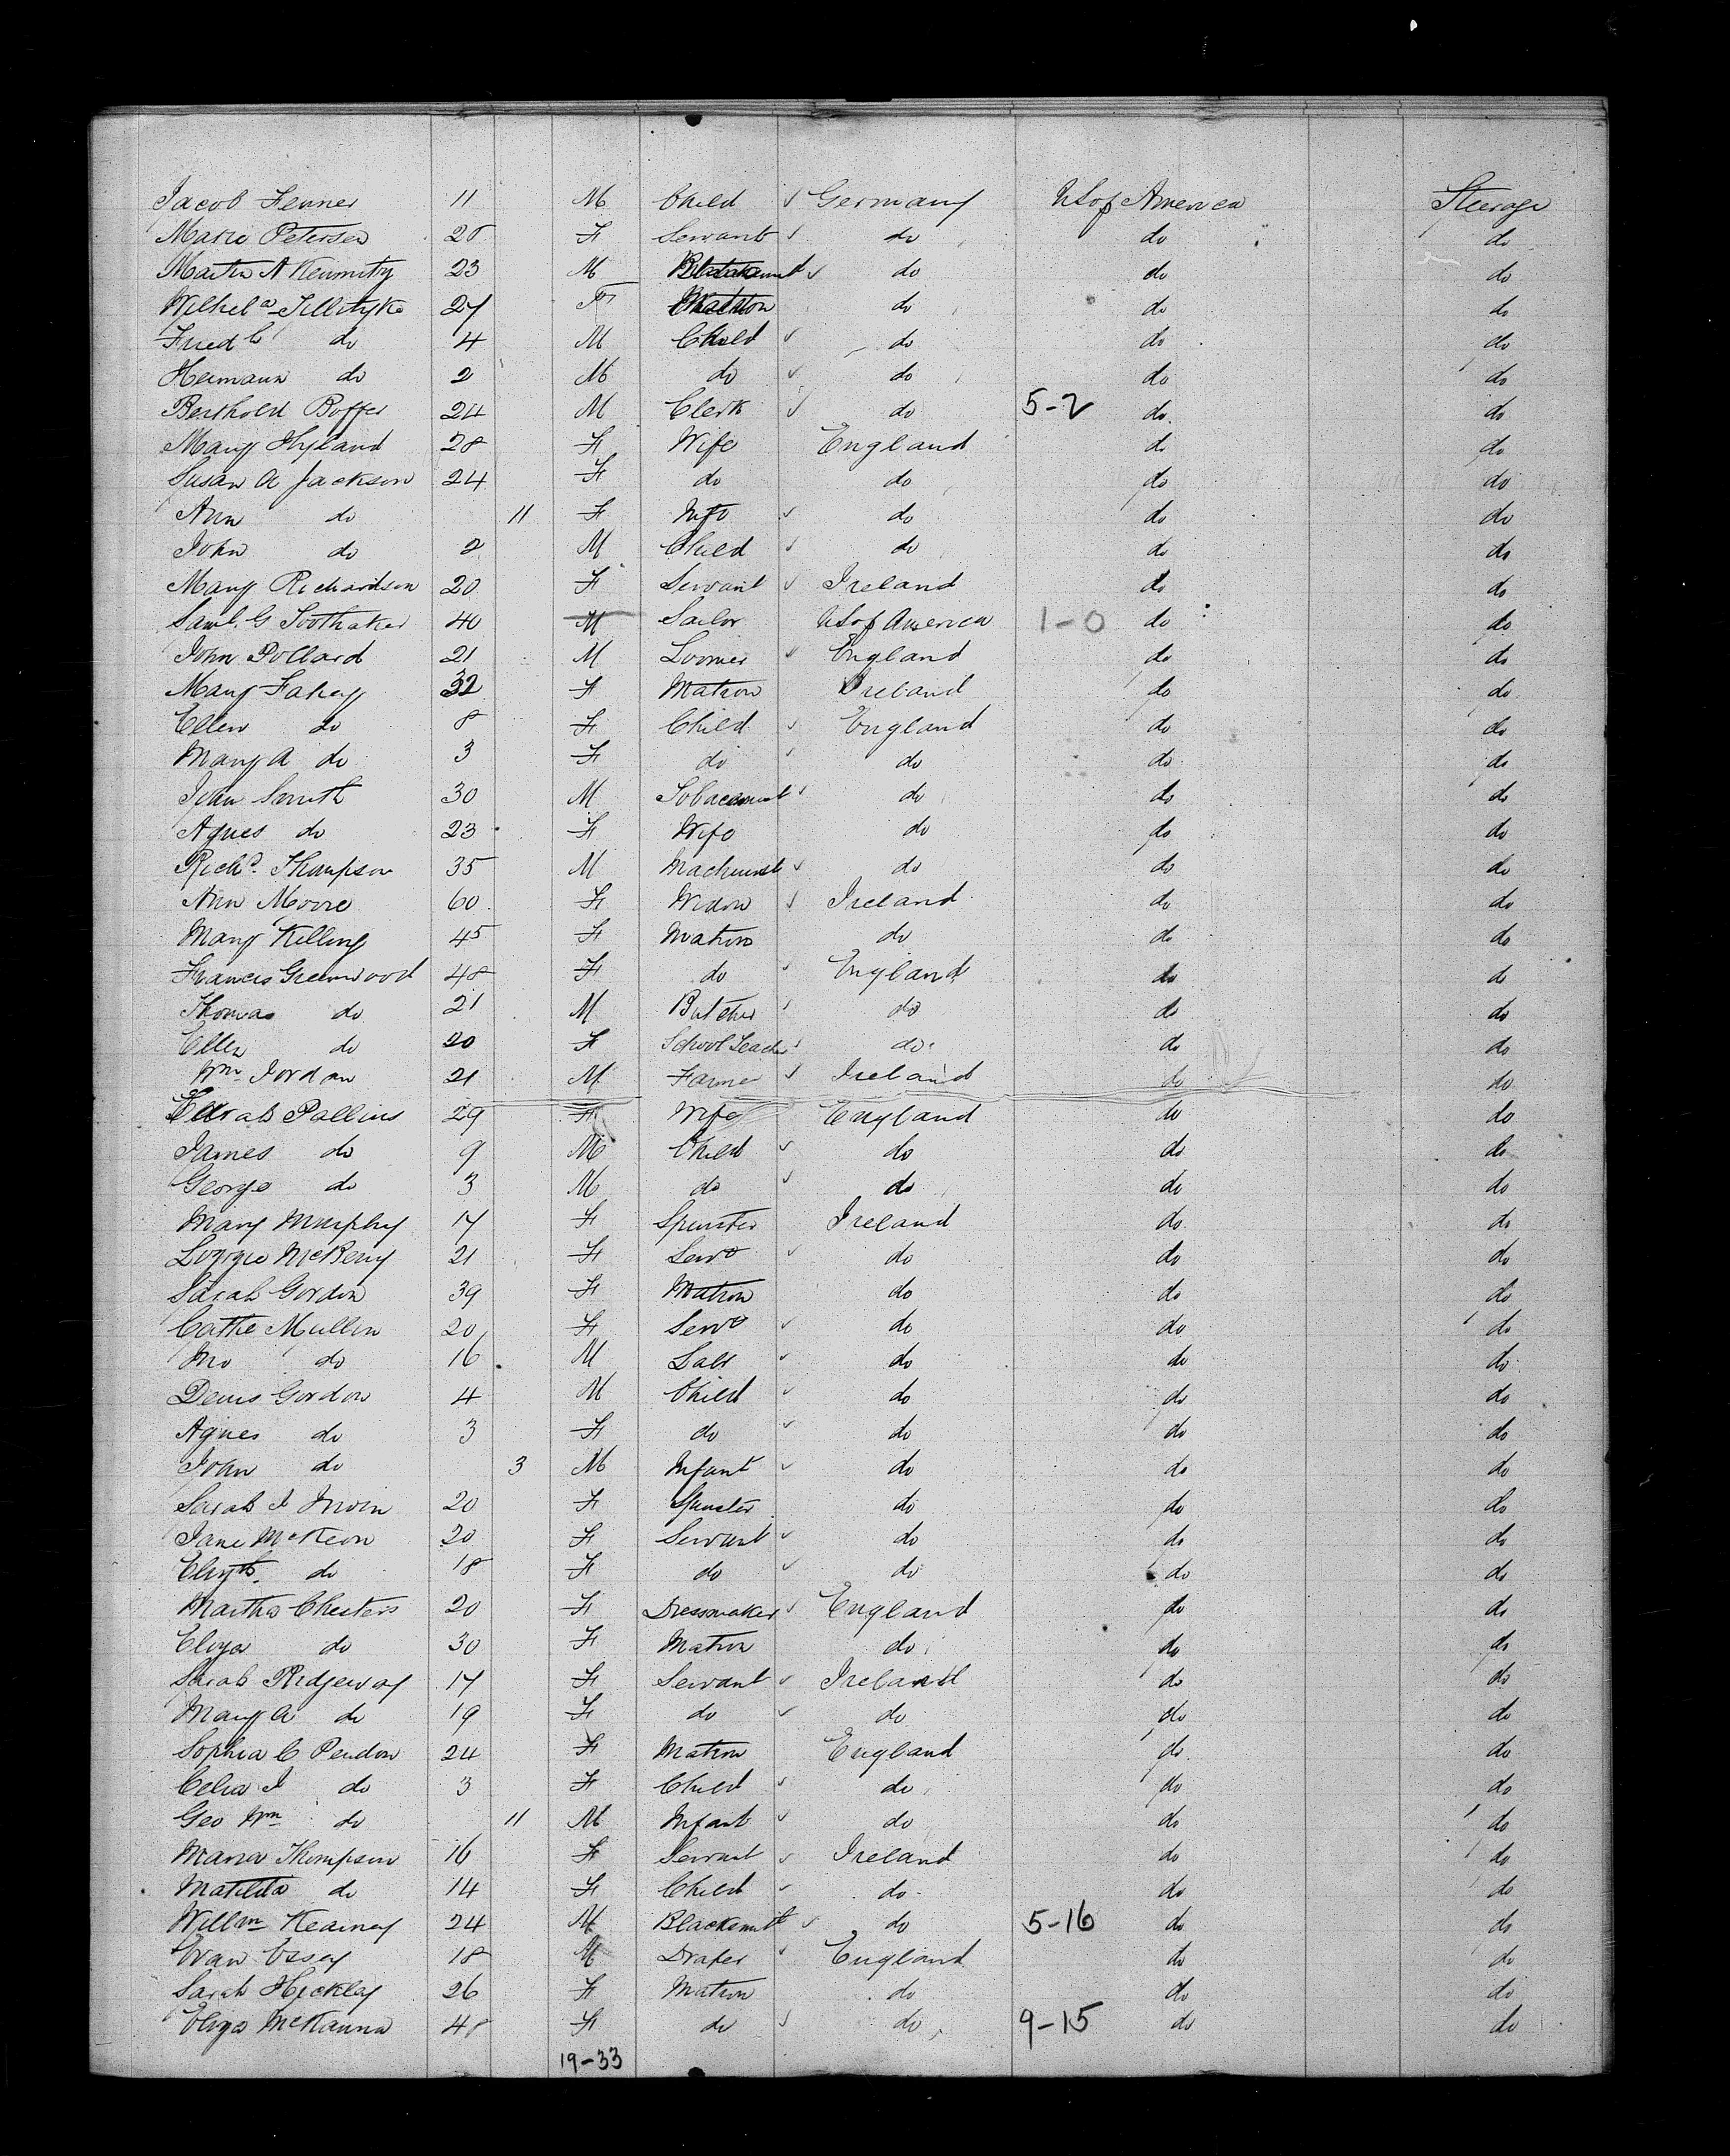 Jacob Fenner 11 M Child Germany U S of America Steerage
Marie Petersen 20 F Servant do do do
Martin A 23 M do do do
Wilhel a 27 F Matron do do do
Fred C do 4 M Child do do do
Hermann do 2 M do do do do
Berthold Boffer 24 M Clerk do 5-2 do do
Mary Hyland 28 F Wife England do do
Susan A Jackson 24 F do do do do
Ann do 11 F Inft do do do
John do 2 M Child do do do
Mary Richardson 20 F Servant Ireland do do
Saml. G Toothaker 40 M Sailor U S of America 1-0 do do
John Pollard 21 M Loomer England do do
Mary Fahey 32 F Matron Ireland do do
Ellen do 8 F Child England do do
Mary A do 3 F do do do do
John Smith 30 M do do do
Agnes do 23 F Wife do do do
Richd. Thompson 35 M Machinist do do do
Ann Moore 60 F Widow Ireland do do
Mary Killing 45 F Matron do do do
Francis Greenwood 48 F do England do do
Thomas do 21 M Butcher do do do
Ellen do 20 F School Teacher do do do
Wm Jordan 21 M Farmer Ireland do do
Pallins 29 F Wife England do do
James do 9 M Child do do do
George do 3 M do do do do
Mary Murphy 17 F Spinster Ireland do do
Lizzie McKeny 21 F Servt do do do
Sarah Gordon 39 F Matron do do do
Cathe Mullen 20 F Servt do do do
Jno do 16 M Labr do do do
Denis Gordon 4 M Child do do do
Agnes do 3 F do do do do
John do 3 M Infant do do do
Sarah J Irwin 20 F Spinster do do do
Jane McKeon 20 F Servant do do do
Elizth. do 18 F do do do do
Martha Chesters 20 F Dressmaker England do do
Eliza do 30 F Matron do do do
Sarah Ridgeway 17 F Servant Ireland do do
Mary A do 19 F do do do do
Sophia C Pendon 24 F Matron England do do
Celia J do 3 F Child do do do
Geo Wm do 11 M Infant do do do
Maria Thompson 16 F Servant Ireland do do
Matilda do 14 F Child do do do
Willm Kearney 24 M Blacksmith do 5-16 do do
Evan 18 M Draper England do do
Sarah Hickley 26 F Matron do do do
Eliza McKanna 48 F do do 9-15 do do
19-33